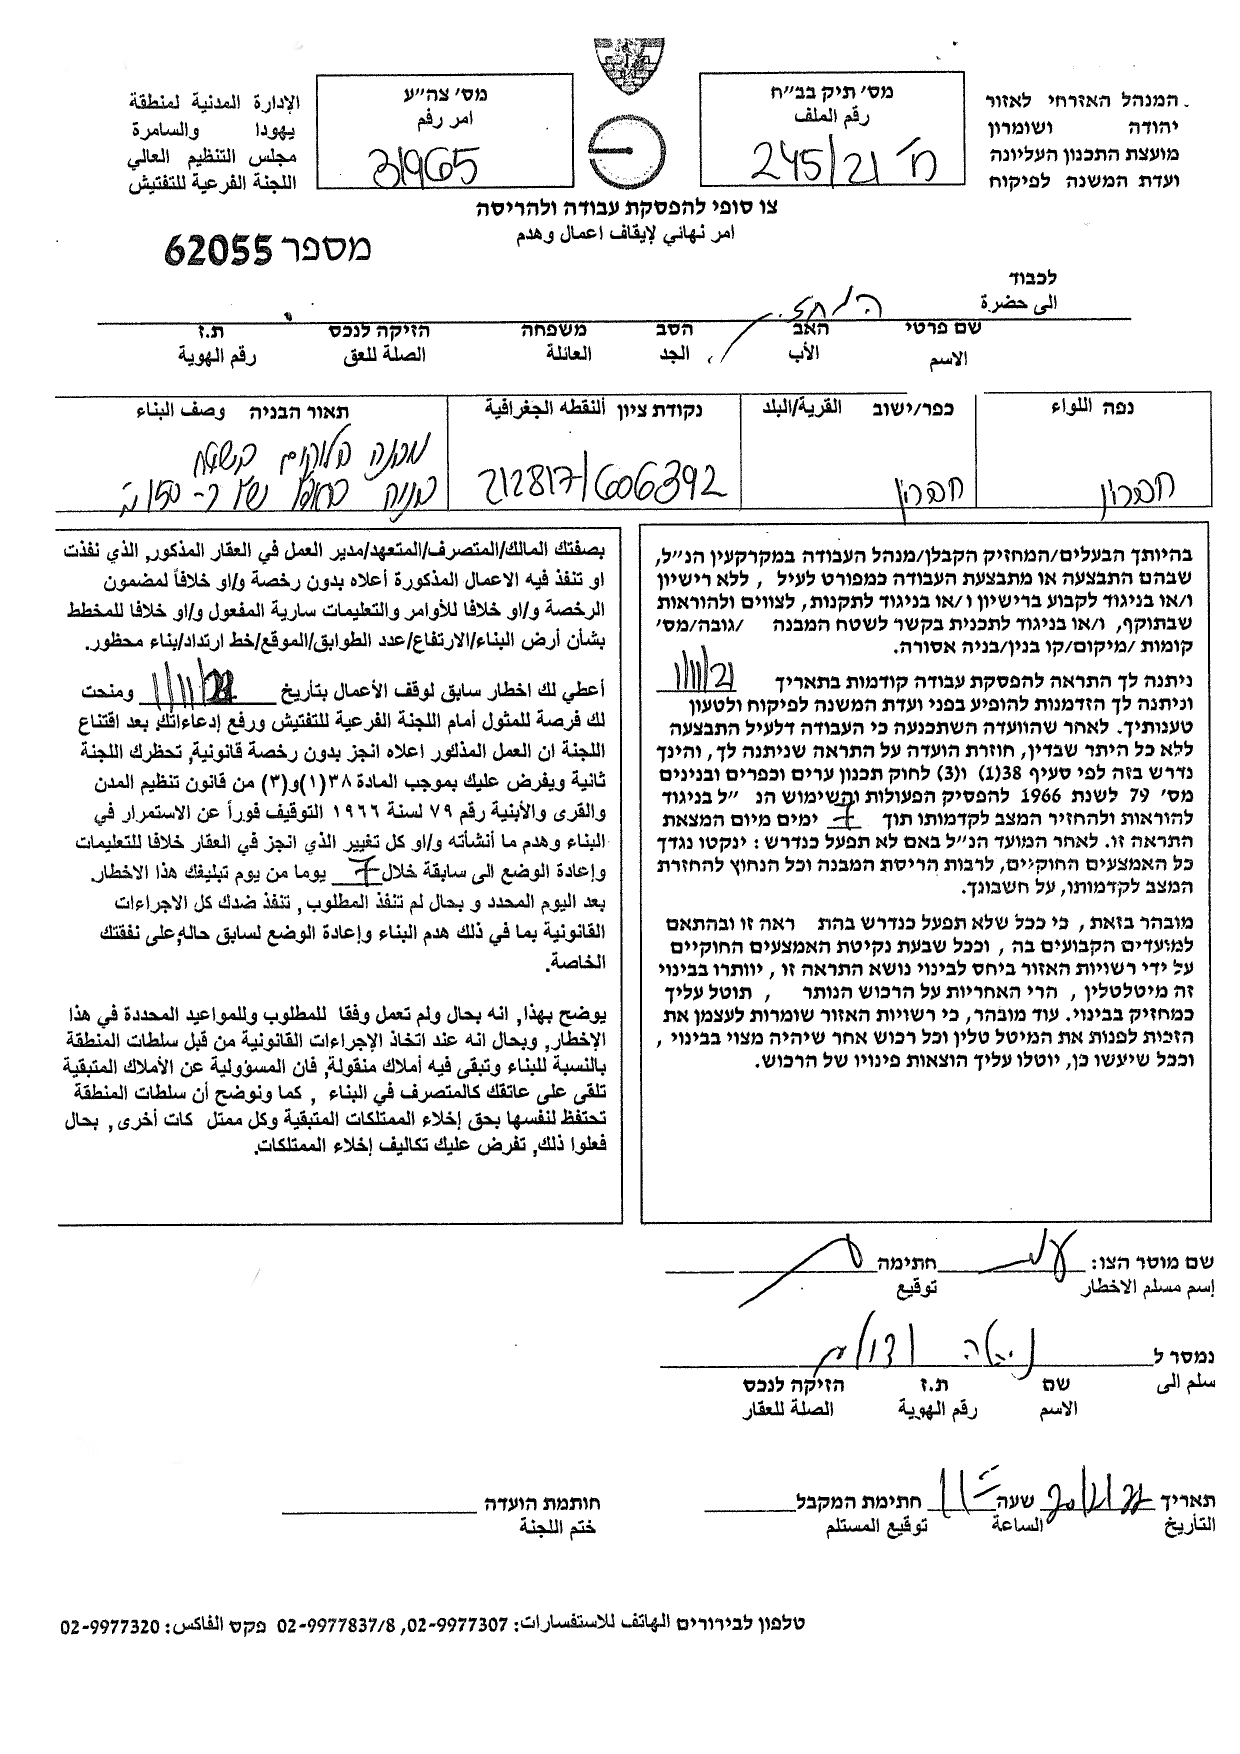 המנהל האזרחי לאזור
יהודה ושומרון
מועצת התכנון העליונה
ועדת המשנה לפיקוח
מס׳ תיק בב״ח
رقم الملف
ח 245/21
מס׳ צה״ע
امر رقم
31965
الإدارة المدنية لمنطقة
يهودا والسامرة
مجلس التنظيم العالي
اللجنة الفرعية للتفتيش
צו סופי להפסקת עבודה ולהריסה
امر نهاني لإيقاف اعمال وهدم
מספר 62055
לכבוד
الى حضرة
המחזיק
שם פרטי האב הסב משפחה הזיקה לנכס ת.ז
الاسم الأب الجد العائلة الصلة للعق رقم الهوية
נפה اللواء
חברון
כפר/ישוב القرية/البلد
חברון
נקודת ציון ألنقطه الجغرافية
212817/606392
תאור הבניה وصف البناء
מבנה בלוקים בשטח
של כ- 150 מ״ר
בהיותך הבעלים/המחזיק הקבלן/מנהל העבודה במקרקעין הנ״ל,
שבהם התבצעה או מתבצעת העבודה כמפורט לעיל , ללא רישיון
ו/או בניגוד לקבוע ברישיון ו/או בניגוד לתקנות, לצווים ולהוראות
שבתוקף, ו/או בניגוד לתכנית בקשר לשטח המבנה /גובה/מס׳
קומות /מיקום/קו בנין/בניה אסורה.
ניתנה לך התראה להפסקת עבודה קודמות בתאריך 1/11/21
וניתנה לך הזדמנות להופיע בפני ועדת המשנה לפיקוח ולטעון
טענותיך. לאחר שהוועדה השתכנעה כי העבודה דלעיל התבצעה
ללא כל היתר שבדין, חוזרת הועדה על התראה שניתנה לך, והינך
נדרש בזה לפי סעיף 38(1) ו(3) לחוק תכנון ערים וכפרים ובנינים
מס׳ 79 לשנת 1966 להפסיק הפעולות והשימוש הנ ״ל בניגוד
להוראות ולהחזיר המצב לקדמותו תוך 7 ימים מיום המצאת
התראה זו. לאחר המועד הנ״ל באם לא תפעל כנדרש : ינקטו נגדך
כל האמצעים החוקיים, לרבות הריסת המבנה וכל הנחוץ להחזרת
המצב לקדמותו, על חשבונך.
מובהר בזאת , כי ככל שלא תפעל כנדרש בהת ראה זו ובהתאם
למועדים הקבועים בה , וככל שבעת נקיטת האמצעים החוקיים
על ידי רשויות האזור ביחס לבינוי נושא התראה זו , יוותרו בבינוי
זה מיטלטלין , הרי האחריות על הרכוש הנותר , תוטל עליך
כמחזיק בבינוי. עוד מובהר, כי רשויות האזור שומרות לעצמן את
הזכות לפנות את המיטל טלין וכל רכוש אחר שיהיה מצוי בבינוי ,
וככל שיעשו כן, יוטלו עליך הוצאות פינויו של הרכוש.
بصفتك المالك/المتصرف/المتعهد/مدير العمل في العقار المذكور, الذي نفذت
او تنفذ فيه الاعمال المذكورة أعلاه بدون رخصة و/او خلافاً لمضمون
الرخصة و/او خلافا للأوامر والتعليمات سارية المفعول و/او خلافا للمخطط
بشأن أرض البناء/الارتفاع/عدد الطوابق/الموقع/خط ارتداد/بناء محظور.
أعطي لك اخطار سابق لوقف الأعمال بتأريخ 1/11/21 ومنحت
لك فرصة للمثول أمام اللجنة الفرعية للتفتيش ورفع إدعاءاتك. بعد اقتناع
اللجنة ان العمل المذكور اعلاه انجز بدون رخصة قانونية, تحظرك اللجنة
ثانية ويفرض عليك بموجب المادة ٣٨(١)و(٣) من قانون تنظيم المدن
والقرى والأبنية رقم ٧٩ لسنة ١٩٦٦ التوقيف فوراً عن الاستمرار في
البناء وهدم ما أنشأته و/او كل تغيير الذي انجز في العقار خلافا للتعليمات
وإعادة الوضع الى سابقة خلال 7 يوما من يوم تبليغك هذا الاخطار.
بعد اليوم المحدد و بحال لم تنفذ المطلوب, تنفذ ضدك كل الاجراءات
القانونية بما في ذلك هدم البناء وإعادة الوضع لسابق حاله, على نفقتك
الخاصة.
يوضح بهذا, انه بحال ولم تعمل وفقا للمطلوب وللمواعيد المحددة في هذا
الإخطار, وبحال انه عند اتخاذ الإجراءات القانونية من قبل سلطات المنطقة
بالنسبة للبناء وتبقى فيه أملاك منقولة, فان المسؤولية عن الأملاك المتبقية
تلقى على عاتقك كالمتصرف في البناء , كما ونوضح أن سلطات المنطقة
تحتفظ لنفسها بحق إخلاء الممتلكات المتبقية وكل ممتل كات أخرى, بحال
فعلوا ذلك, تفرض عليك تكاليف إخلاء الممتلكات.
שם מוסר הצו: חתימה
إسم مسلم الاخطار توقيع
נמסר ל
سلم الى
שם ת.ז הזיקה לנכס
الاسم رقم الهوية الصلة للعقار
תאריך שעה חתימת המקבל חותמת הועדה
التأريخ الساعة توقيع المستلم ختم اللجنة
טלפון לבירורים الهاتف للاستفسارات: 02-9977307, 02-9977837/8 פקס الفاكس: 02-9977320